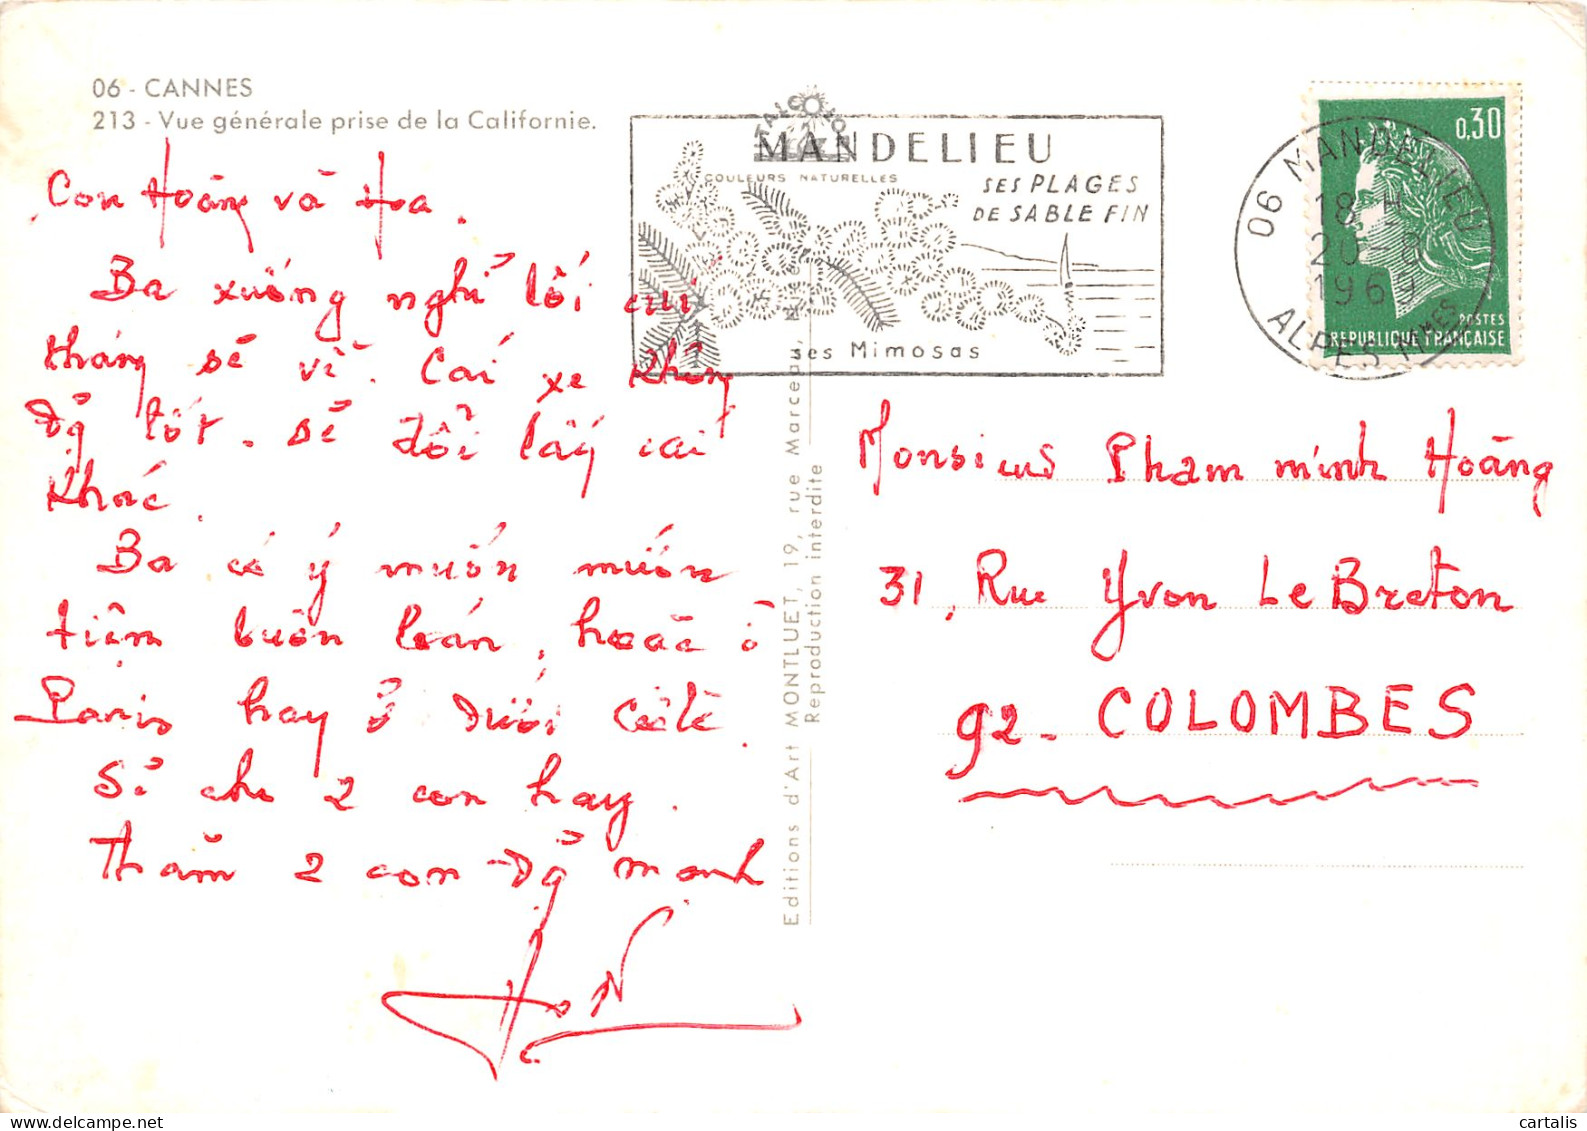 06 - CANNES
213 - Vue générale prise de la Californie.
Con Hoàng và Hoa.
Ba xuống nghỉ tối cuối
tháng sẽ về. Cái xe không
đg tốt. Sẽ đổi lấy cái
khác.
Ba có ý muốn mướn
tiệm buôn bán, hoặc ở
Paris hay ở dưới Côte.
Sẽ cho 2 con hay.
Thăm 2 con đg mạnh
MANDELIEU
COULEURS NATURELLES
SES PLAGES
DE SABLE FIN
ses Mimosas
06 MANDELIEU
18 H
20-8
1969
ALPES MMES
0,30
POSTES
REPUBLIQUE FRANÇAISE
Editions d'Art MONTLUET, 19, rue Marceau,
Reproduction interdite
Monsieur Pham minh Hoàng
31, Rue Yvon Le Breton
92 - COLOMBES
cartalis